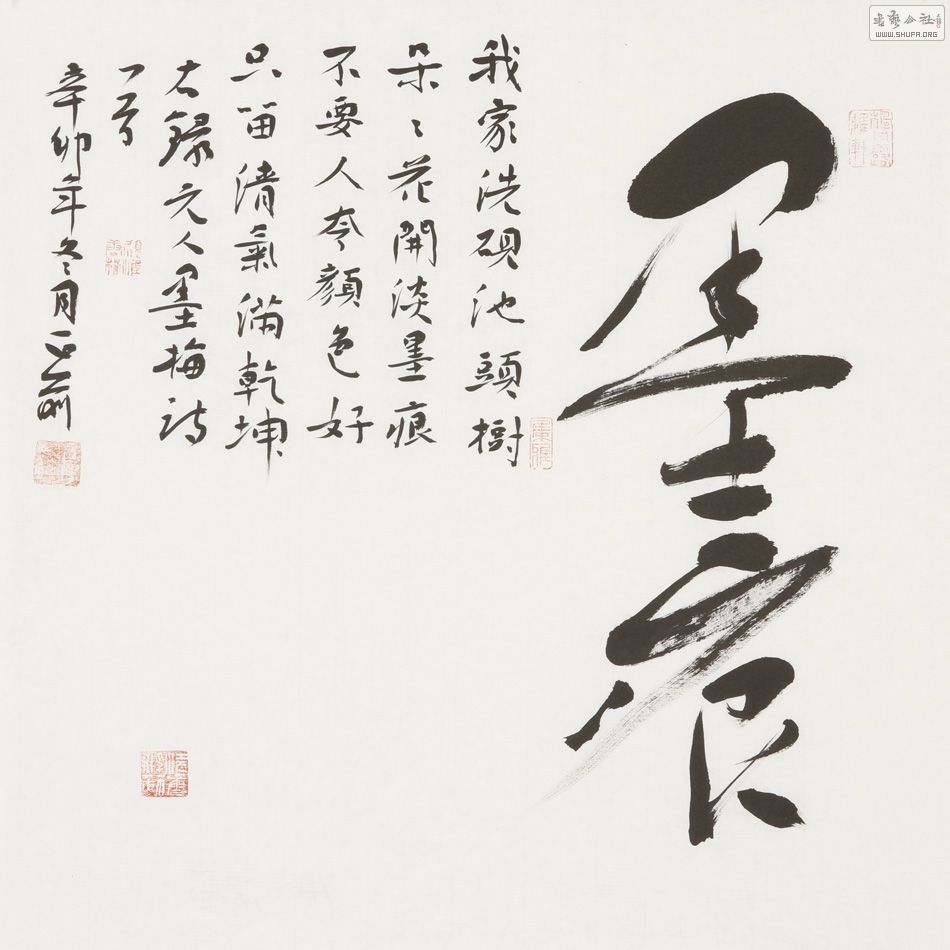 書藝公社
WWW.SHUFA.ORG
墨痕
我家洗硯池頭樹
朵〻花開淡墨痕
不要人夸顏色好
只留清氣滿乾坤
右錄元人墨梅詩
一首
辛卯年冬月